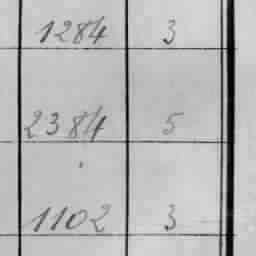 1284 3
2384 5
1102 3